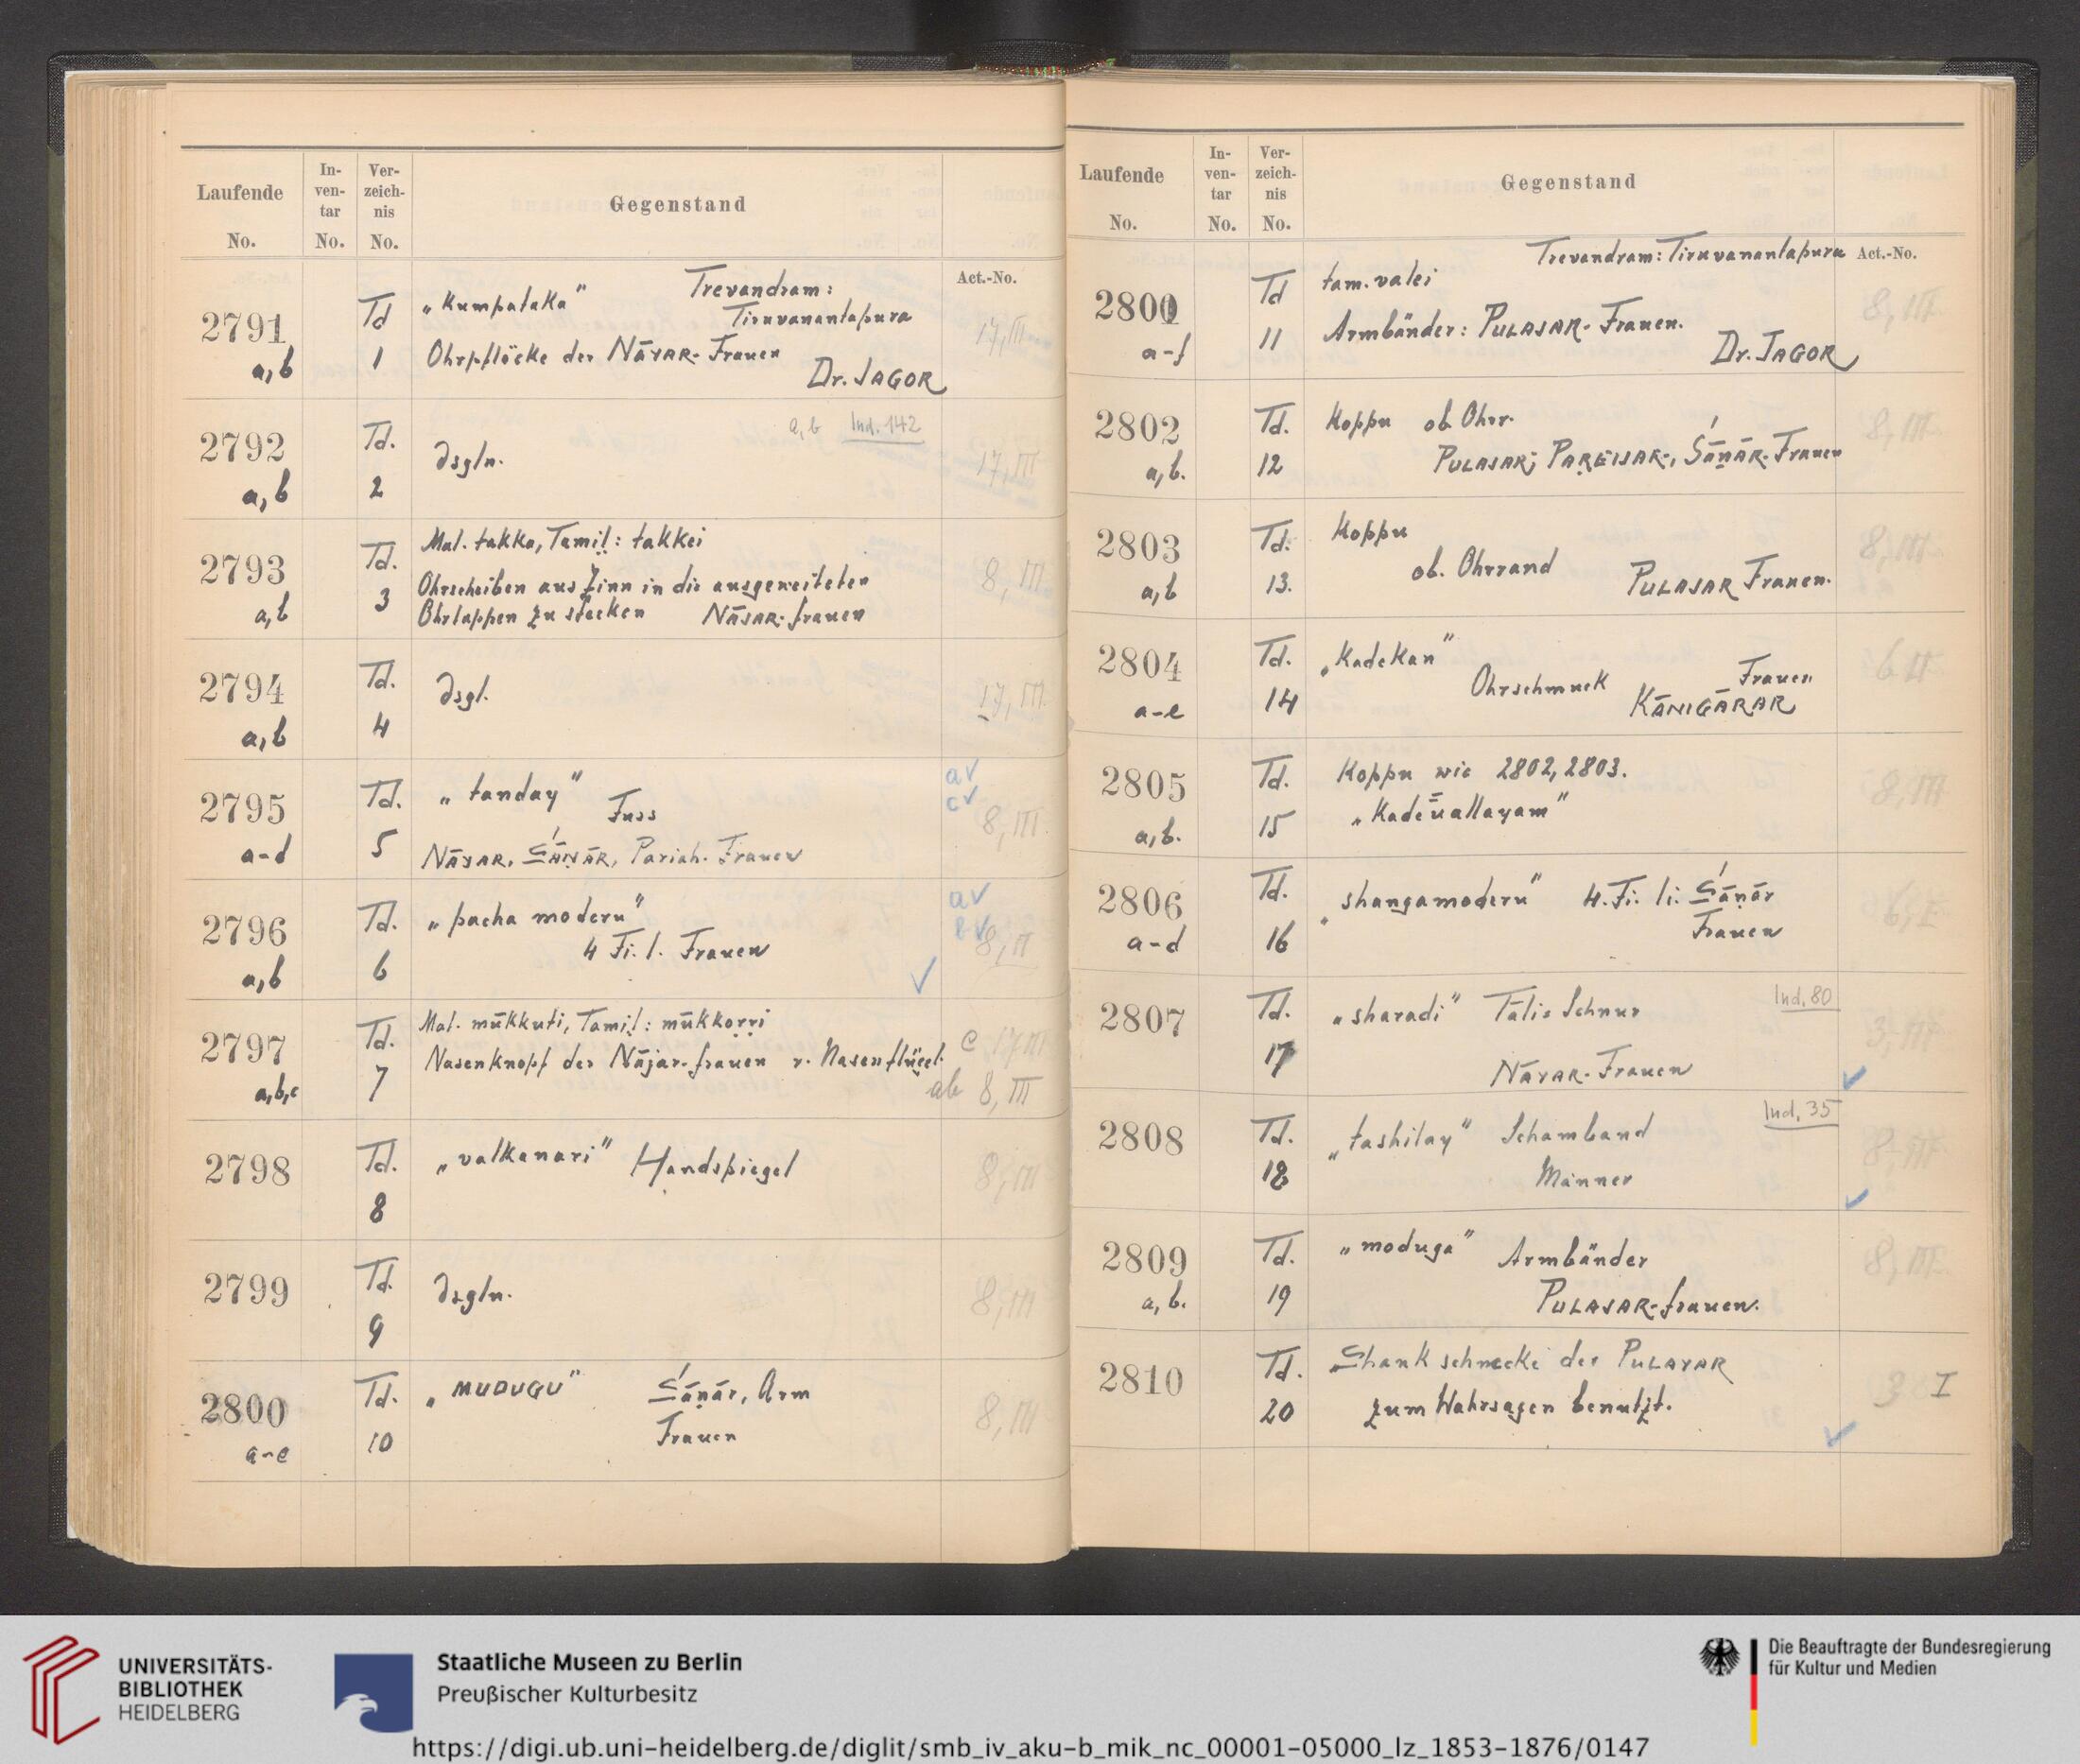 Laufende No.
In-ven-tar No.
Ver-zeich-nis No.
Gegenstand
Act.-No.
2791 a,b Td 1 „Kumpalaka" Trevandram:
Tiruvanantapura
Ohrpflöcke der NĀYAR-Frauen
Dr. JAGOR
17, III
2792 a,b Td. 2 dsgln. a,b Ind. 142
17, III
2793 a,b Td. 3 Mal. takka, Tamiḷ: takkei
Ohrscheiben aus Zinn in die ausgeweiteten
Ohrlappen zu stecken NĀJAR-frauen
8, III
2794 a,b Td. 4 dsgl.
17, III
2795 a-d Td. 5 „tanday" Fuss
NĀYAR, ŚĀṆĀR, Pariah-Frauen
a✓
c✓
8, III
2796 a,b Td. 6 „pacha moderu"
4 Fi. l. Frauen ✓
a✓
b✓
8, II
2797 a,b,c Td. 7 Mal. mūkkuti, Tamiḷ: mūkkoṟṟi
Nasenknopf der Nājar-frauen r. Nasenflügel.
c 17 III
ab 8, III
2798 Td. 8 „valkanari" Handspiegel
8, III
2799 Td. 9 dsgln.
8, III
2800 a-e Td. 10 „MUDUGU" Śāṇār, Arm
Frauen
8, III
Laufende No.
In-ven-tar No.
Ver-zeich-nis No.
Gegenstand
Trevandram: Tiruvanantapura Act.-No.
2801 a-f Td 11 tam. valei
Armbänder: PULAJAR-Frauen.
Dr. JAGOR
8, III
2802 a,b. Td. 12 Koppu ob. Ohrr.
PULAJAR-, PAREIJAR-, ŚĀṆĀR-Frauen
8, III
2803 a,b Td. 13. Koppu
ob. Ohrrand PULAJAR Frauen.
8, III
2804 a-e Td. 14 „Kadekan"
Ohrschmuck Frauen
KĀNIGĀRAR
6 II
2805 a,b. Td. 15 Koppu wie 2802, 2803.
8, III
2806 a-d Td. 16 „shangamoderu" 4. Fi. li. Śāṇār
Frauen
6, I
2807 Td. 17 „sharadi" Tāli-Schnur Ind. 80
NĀYAR-Frauen ✓
2808 Td. 18 „tashilay" Schamband Ind. 35
Männer ✓
8, III
2809 a,b. Td. 19 „moduga" Armbänder
PULAJAR-frauen.
8, III
2810 Td. 20 Shankschnecke der PULAYAR
zum Wahrsagen benutzt. ✓
3 I
UNIVERSITÄTS-
BIBLIOTHEK
HEIDELBERG
Staatliche Museen zu Berlin
Preußischer Kulturbesitz
Die Beauftragte der Bundesregierung
für Kultur und Medien
https://digi.ub.uni-heidelberg.de/diglit/smb_iv_aku-b_mik_nc_00001-05000_lz_1853-1876/0147